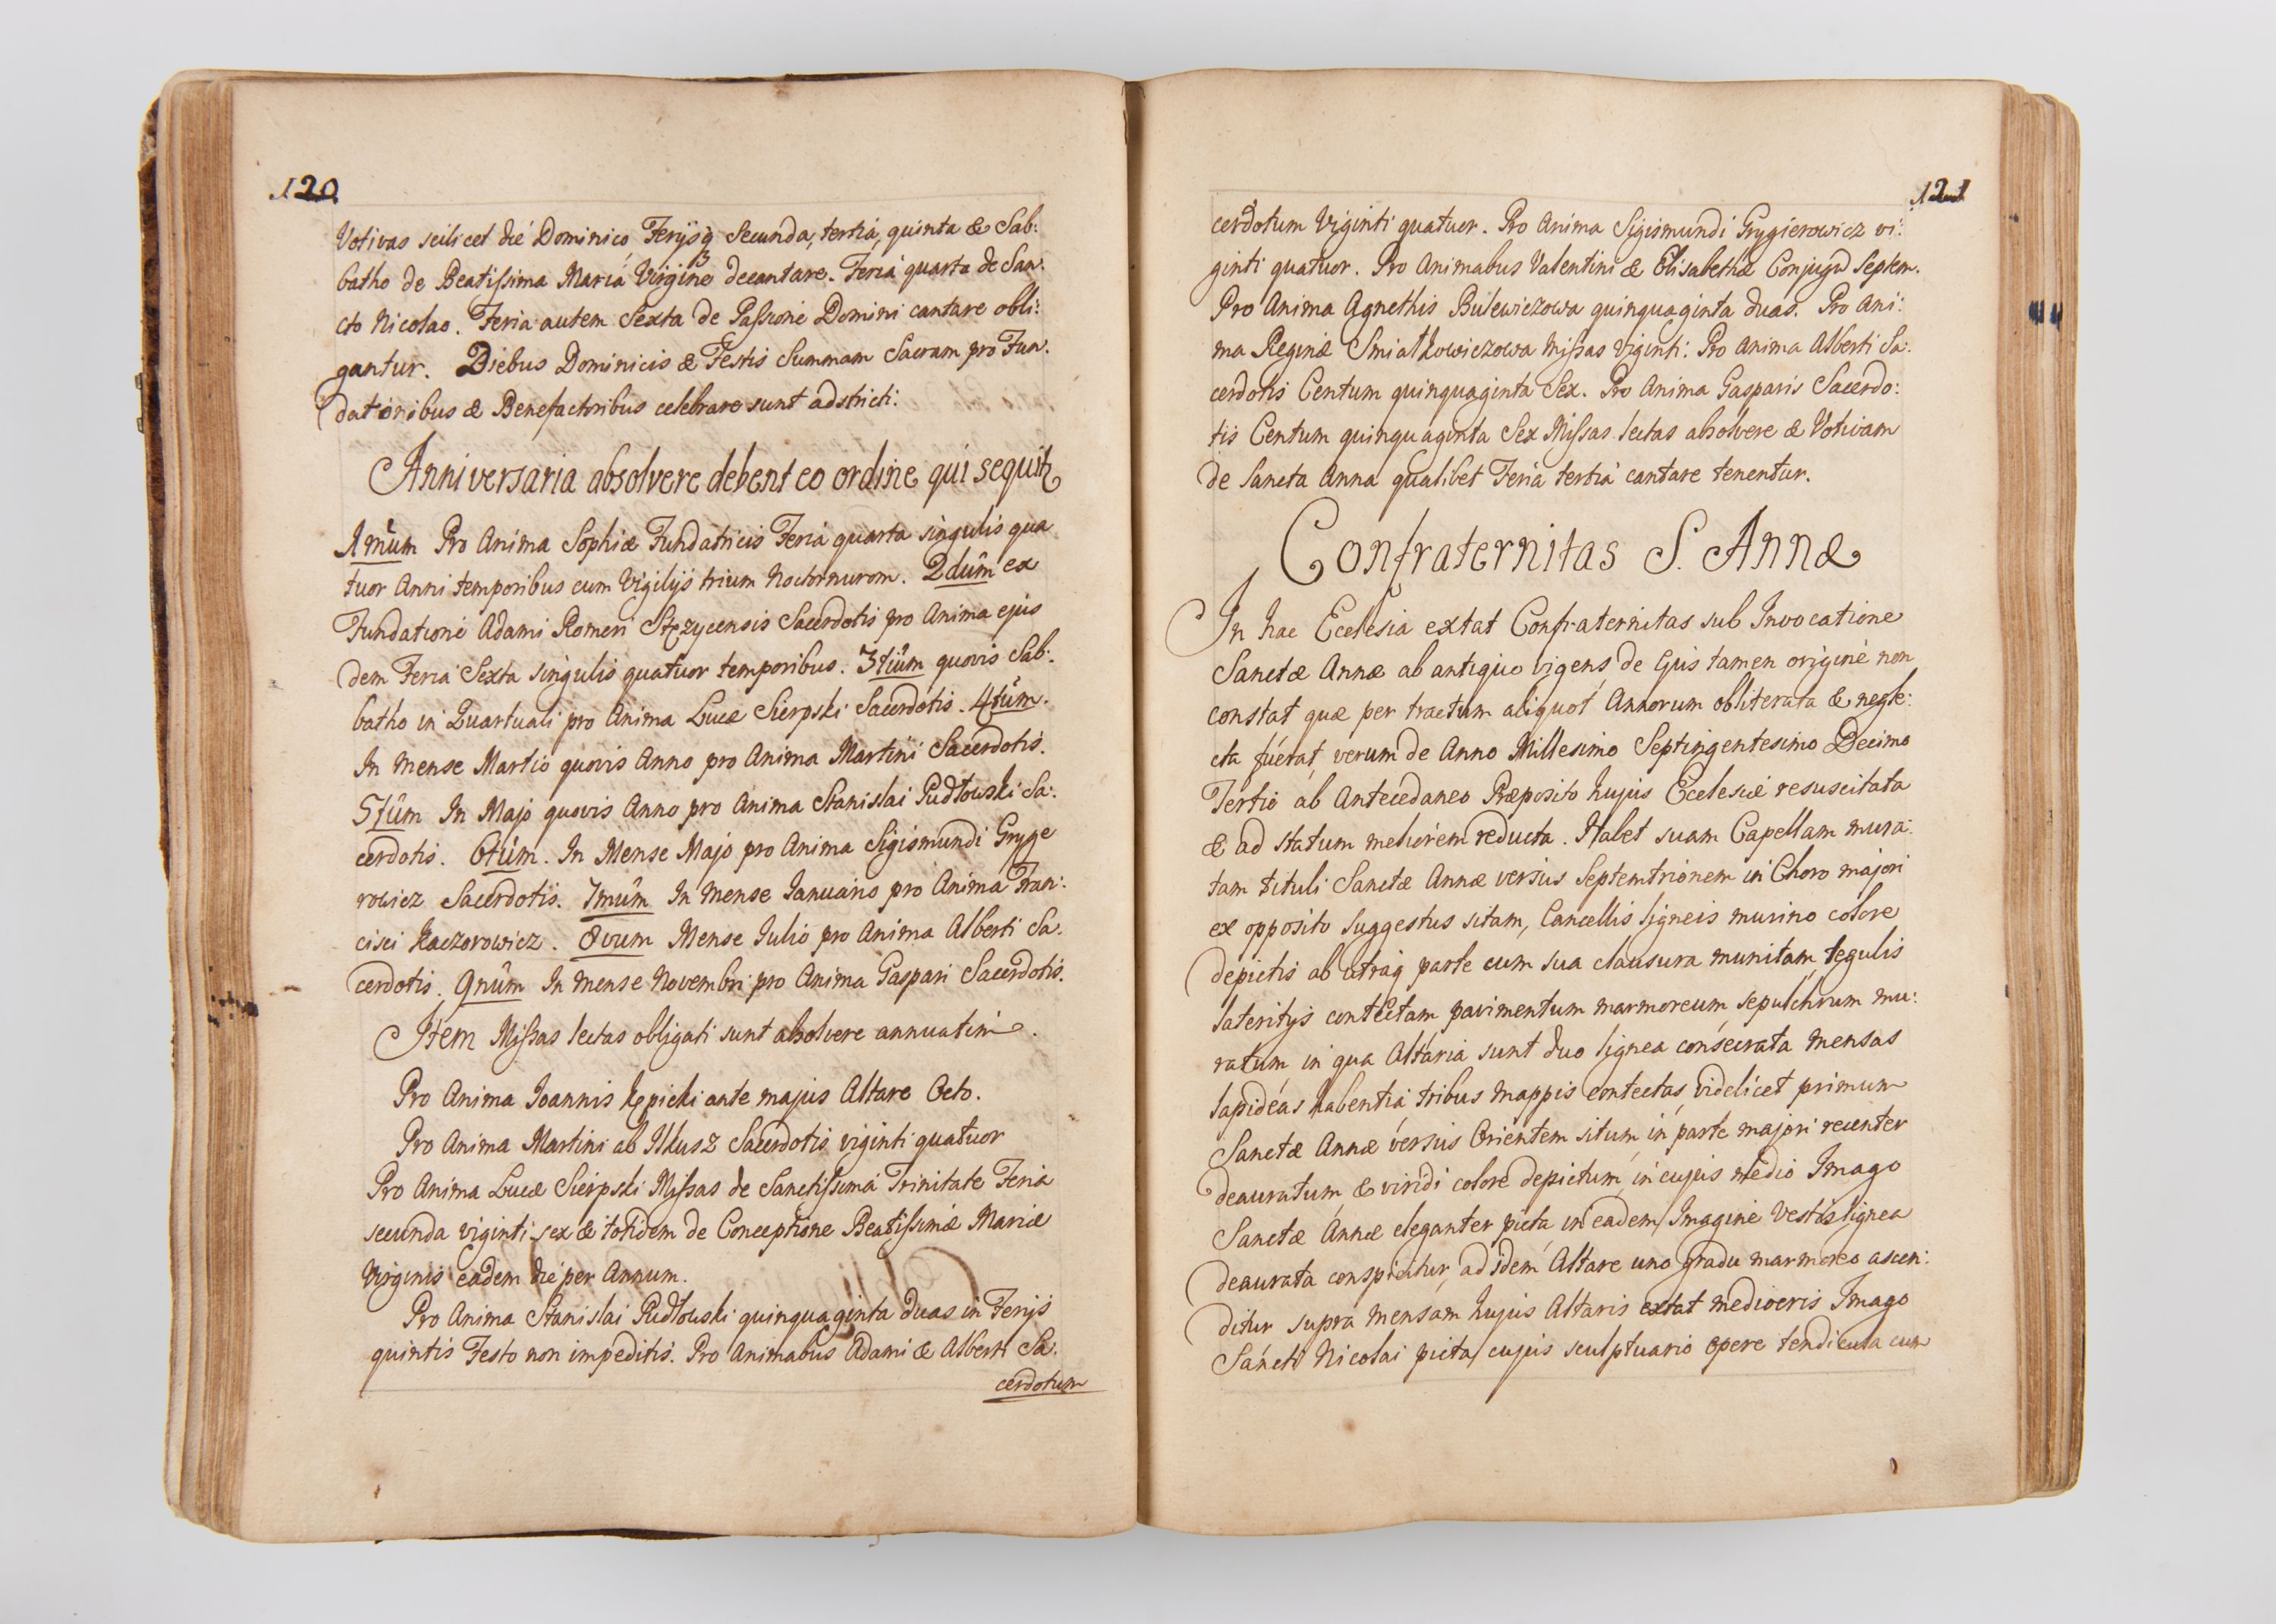 120
Votivas scilicet die Dominico Ferysq Secunda, tertia, quinta & Sab:
batho de Beatissima Maria Virgine decantare. Feria quarta de San:
cto Nicolao. Feria autem Sexta de Passione Domini cantare obli:
gantur. Diebus Dominicis & Festis Summam Sacram pro Fun:
datoribus & Benefactoribus celebrare sunt adstricti:
Anniversaria absolvere debent eo ordine qui sequit
1mum Pro Anima Sophiæ Fundatricis Feria quarta singulis qua
tuor Anni temporibus cum Vigilijs trium Nocturnurom. 2dum ex
Fundatione Adami Romeri Stęzycensis Sacerdotis pro Anima ejus
dem Feria Sexta singulis quatuor temporibus. 3tium quovis Sab:
batho in Quartuali pro Anima Lucæ Sierpski Sacerdotis. 4tum.
In Mense Martio quovis Anno pro Anima Martini Sacerdotis.
5tum In Majo quovis Anno pro Anima Stanislai Pudłowski Sa:
cerdotis. 6tum. In Mense Majo pro Anima Sigismundi Gryge
rowicz Sacerdotis. 7mum In Mense Ianuario pro Anima Fran:
cisci Kaczorowicz. 8vum Mense Iulio pro Anima Alberti Sa:
cerdotis. 9num In Mense Novembri pro Anima Gaspari Sacerdotis.
Item Missas lectas obligati sunt absolvere annuatim.
Pro Anima Ioannis Kępicki ante majus Altare Octo.
Pro Anima Martini ab Ilkusz Sacerdotis viginti quatuor
Pro Anima Lucæ Sierpski Missas de Sanctissima Trinitate Feria
secunda viginti sex & totidem de Conceptione Beatissimæ Mariæ
Virginis eadem die per Annum.
Pro Anima Stanislai Pudłowski quinquaginta duas in Ferijs
quintis Festo non impeditis. Pro Animabus Adami & Alberti Sa:
cerdotum
121
cerdotum Viginti quatuor. Pro Anima Sigismundi Grygierowicz vi:
ginti quatuor. Pro Animabus Valentini & Elisabethæ Conjugũ Septem.
Pro Anima Agnethis Bulewiczowa quinquaginta duas. Pro Ani:
ma Reginæ Smiatkowiczowa Missas Viginti: Pro Anima Alberti Sa:
cerdotis Centum quinquaginta Sex. Pro Anima Gasparis Sacerdo:
tis Centum quinquaginta Sex Missas lectas absolvere & Votivam
de Sancta Anna qualibet Feria tertia cantare tenentur.
Confraternitas S. Annæ
In hac Ecclesia extat Confraternitas sub Invocatione
Sanctæ Annæ ab antiquo vigens, de Ejus tamen origine non
constat quæ per tractum aliquot Annorum obliterata & negle:
cta fuerat, verum de Anno Millesimo Septingentesimo Decimo
Tertio ab Antecedaneo Præposito hujus Ecclesiæ resuscitata
& ad statum meliorem reducta. Habet suam Capellam mura:
tam tituli Sanctæ Annæ versus Septemtrionem in Choro majori
ex opposito Suggestus sitam, Cancellis ligneis murino colore
depictis ab utraq parte cum sua clausura munitam, tegulis
lateritys contectam pavimentum marmoreum, sepulchrum mu:
ratum in qua Altaria sunt duo lignea consecrata Mensas
lapideas habentia tribus Mappis contectas, videlicet primum
Sanctæ Annæ versus Orientem situm, in parte majori recenter
deauratum, & viridi colore depictum, in cujus Medio Imago
Sanctæ Annæ eleganter picta, in eadem Imagine Vestis lignea
deaurata conspicitur, ad idem Altare uno gradu marmoreo ascen:
ditur supra Mensam hujus Altaris extat mediocris Imago
Sancti Nicolai picta, cujus sculptuario opere tendicula cum